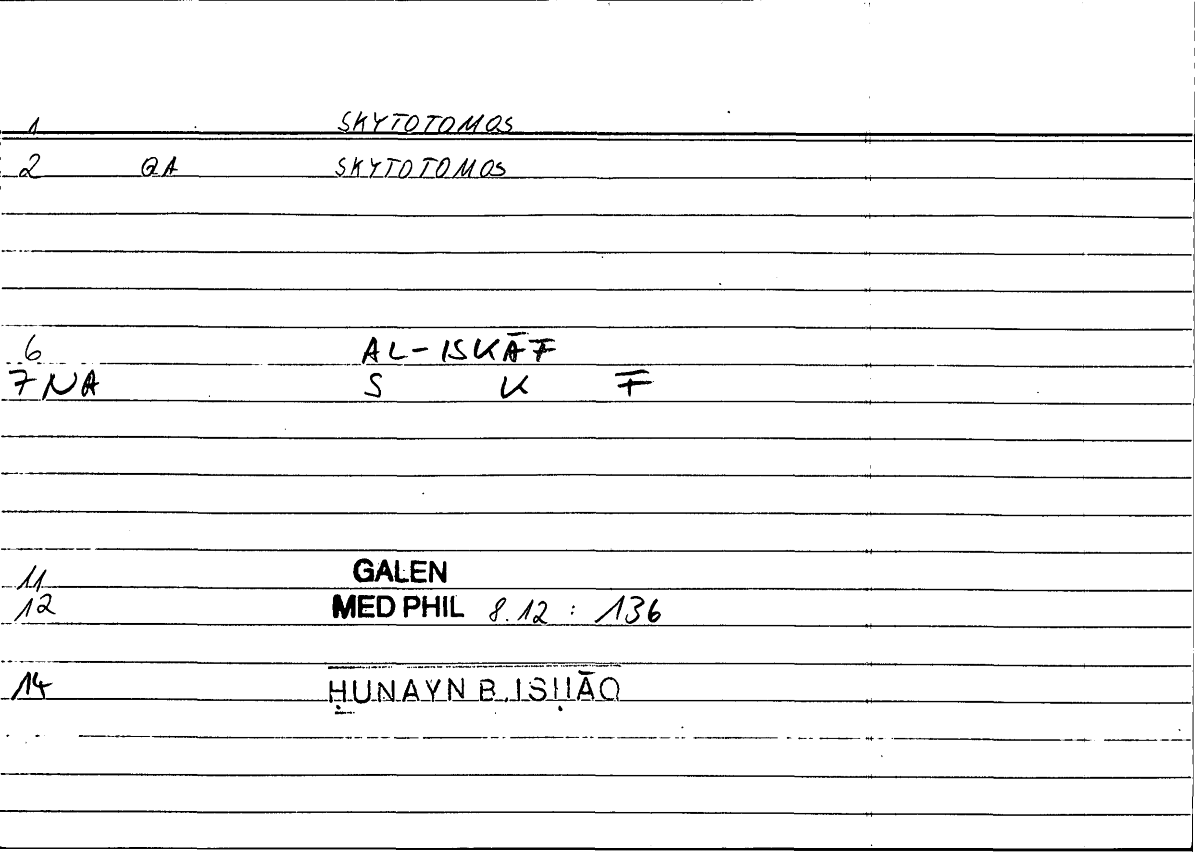 1 SKYTOTOMOS
2 QA SKYTOTOMOS
6 AL-ISKĀF
7 NA S K F
11 GALEN
12 MED PHIL 8.12 : 136
14 ḤUNAYN B. ISḤĀQ